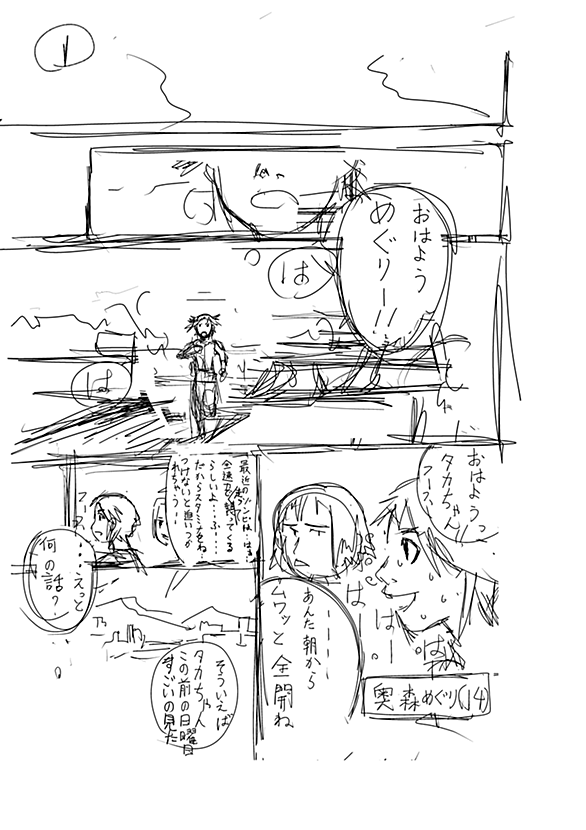 1
おはよう
めぐりー!!
は
は
おはようっ
タカちゃん
フーフー
はー
はー
はぁ
あんた朝から
ムワッと全開ね
奥森めぐり(14)
最近のゾンビは…はぁ
全速力で走って襲ってくる
らしいよ…ふー
だからスタミナをね
つけないと追いつか
れちゃうー
……えっと
何の話?
そういえば
タカちゃん
この前の日曜日
すごいの見た